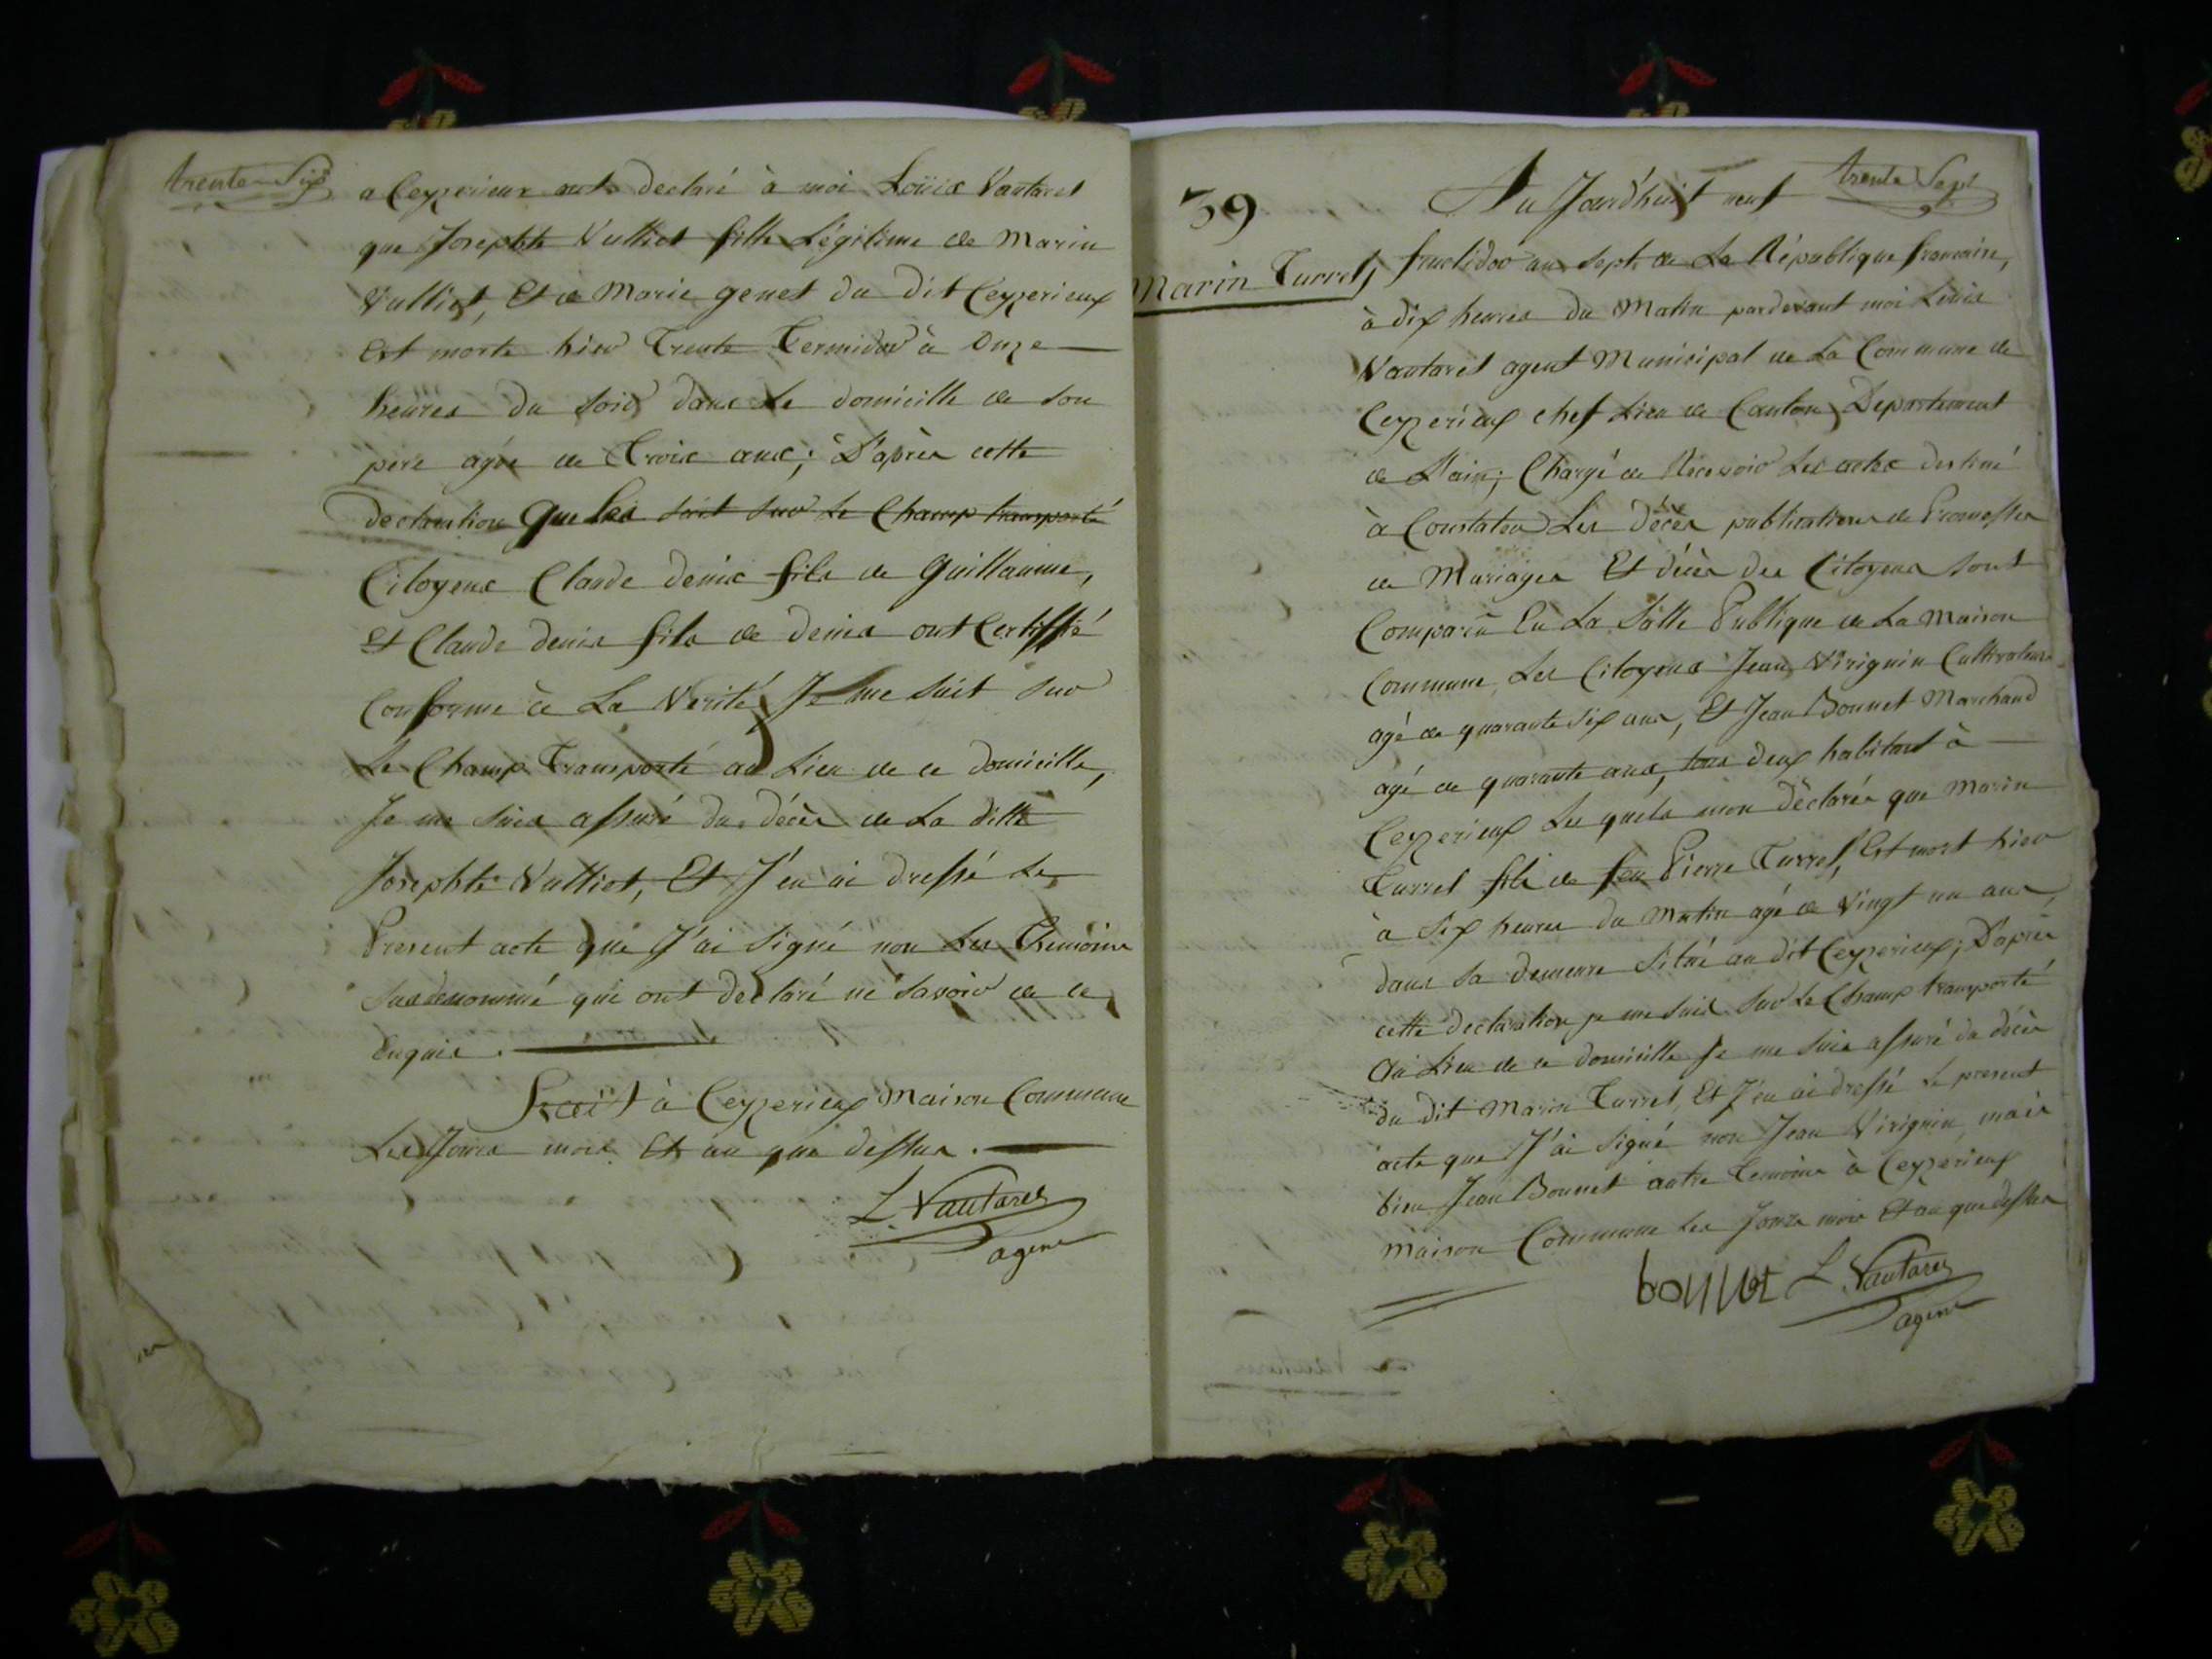 trente Six
a Ceyzerieux ont declaré à moi Loüis Vautaret
que Josephte Vulliot fille Légitime de Marin
Vulliot, Et de Marie genet du dit Ceyzerieux
Est morte hier Trente Termidor à Onze
heures du soir dans Le domicille de son
pere agée de Trois ans; D'après cette
declaration que Les suit sur Le Champ transporté
Citoyens Claude denis fils de guillaume,
Et Claude denis fils de denis ont Certiffié
Conforme à La Verité, Je me suit sur
Le Champ Transporté au Lieu de ce domicille,
Je me suis assuré du décès de La ditte
Josephte Vulliot, Et J'en ai dressé Le
Present acte que J'ai signé non Les Themoins
susdenommé qui ont declaré ne savoir de ce
Enquis.
Fait à Ceyzerieux Maison Commune
Les Jours mois Et an que dessus.
L. Vautaret
agent
trente Sept
39
Au Jourd'huit neuf
Marin Turrel
fructidor an sept de La République francaise,
à dix heures du Matin pardevant moi Louis
Vautaret agent Municipal de La Commune de
Ceyzerieux chef Lieu de Canton, Departement
de L'ain; Chargé de Recevoir Les actes destiné
à Constater Les décès publications de Promesses
de Mariages Et décès des Citoyens sont
Comparu En La Salle Publique de La Maison
Commune, Les Citoyens Jean Virignin Cultivateur
agé de quarante six ans, Et Jean Bonnet Marchand
agé de quarante ans, tous deux habitant à
Ceyzerieux Les quels mon déclarée que Marin
Turrel fils de feu Pierre Turrel, Est mort hier
à Six heures du Matin agé de Vingt un ans,
dans sa demeure Situé au dit Ceyzerieux; D'après
cette declaration je me suis sur Le Champ transporté
au Lieu de ce domicille Je me suis assuré du décès
du dit Marin Turrel, Et J'en ai dressé Le present
acte que J'ai signé non Jean Virignin, mais
bien Jean Bonnet autre Temoins à Ceyzerieux
Maison Commune Les Jours mois Et an que dessus
bonnet L. Vautaret
agent